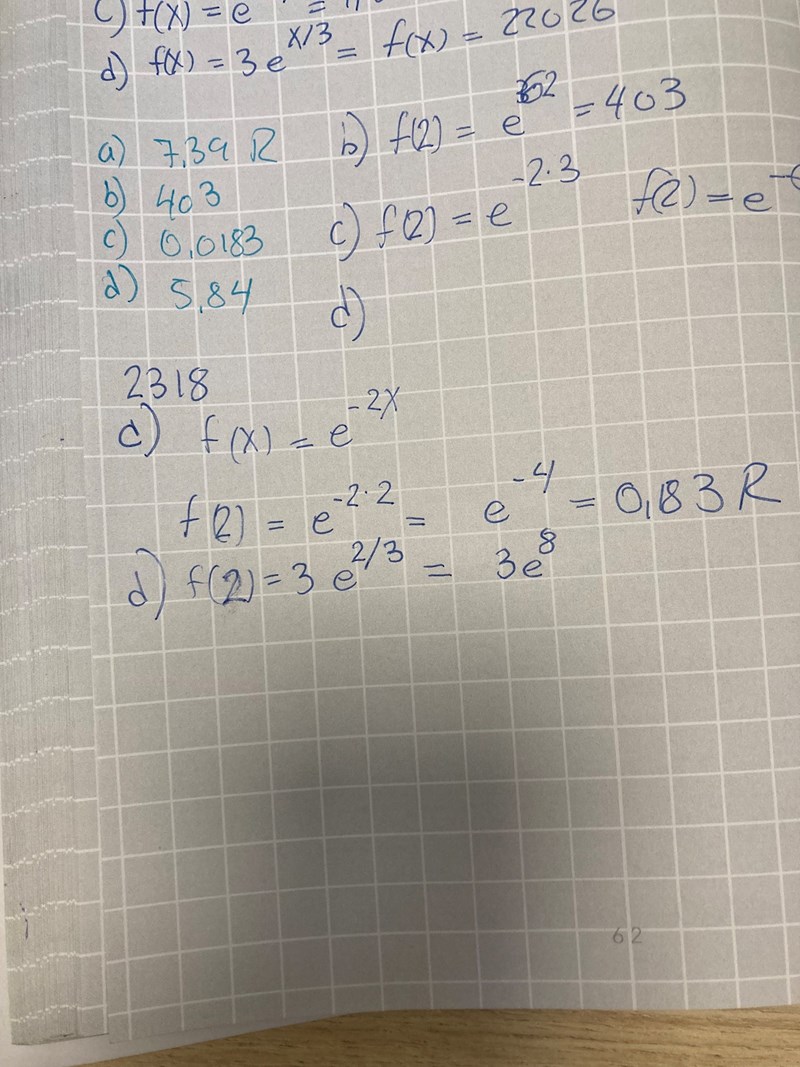 c) f(x) = e =
d) f(x) = 3e^x/3 = f(x) = 22026
a) 7,39 R
b) 403
c) 0,0183
d) 5,84
b) f(2) = e = 403
c) f(2) = e^-2·3 f(2) = e
d)
2318
c) f(x) = e^-2x
f(2) = e^-2·2 = e^-4 = 0,183 R
d) f(2) = 3 e^2/3 = 3e^8
62